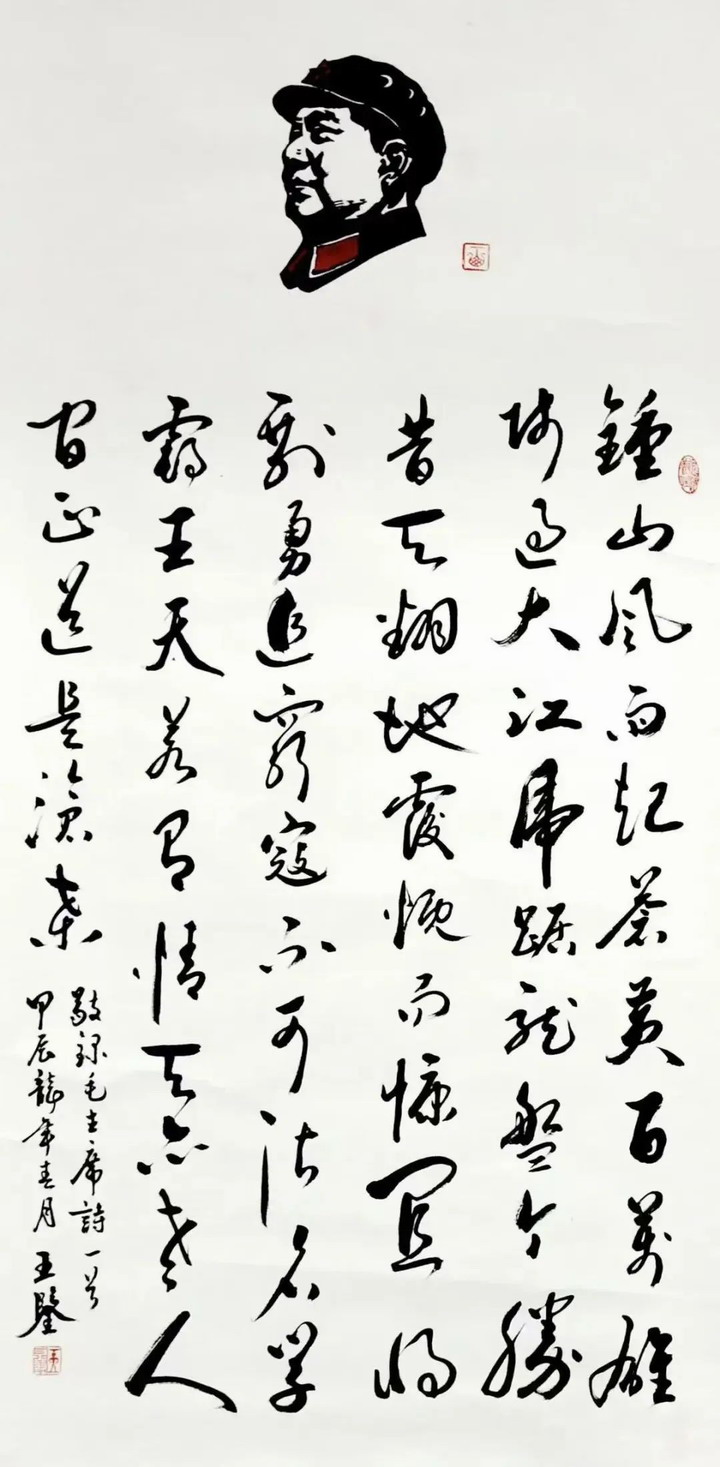 鍾山风雨起蒼黄百萬雄
师过大江虎踞龙盤今勝
昔天翻地覆慨而慷宜將
剩勇追窮寇不可沽名学
霸王天若有情天亦老人
间正道是滄桑
敬録毛主席詩一首
甲辰龍年春月 王鑒